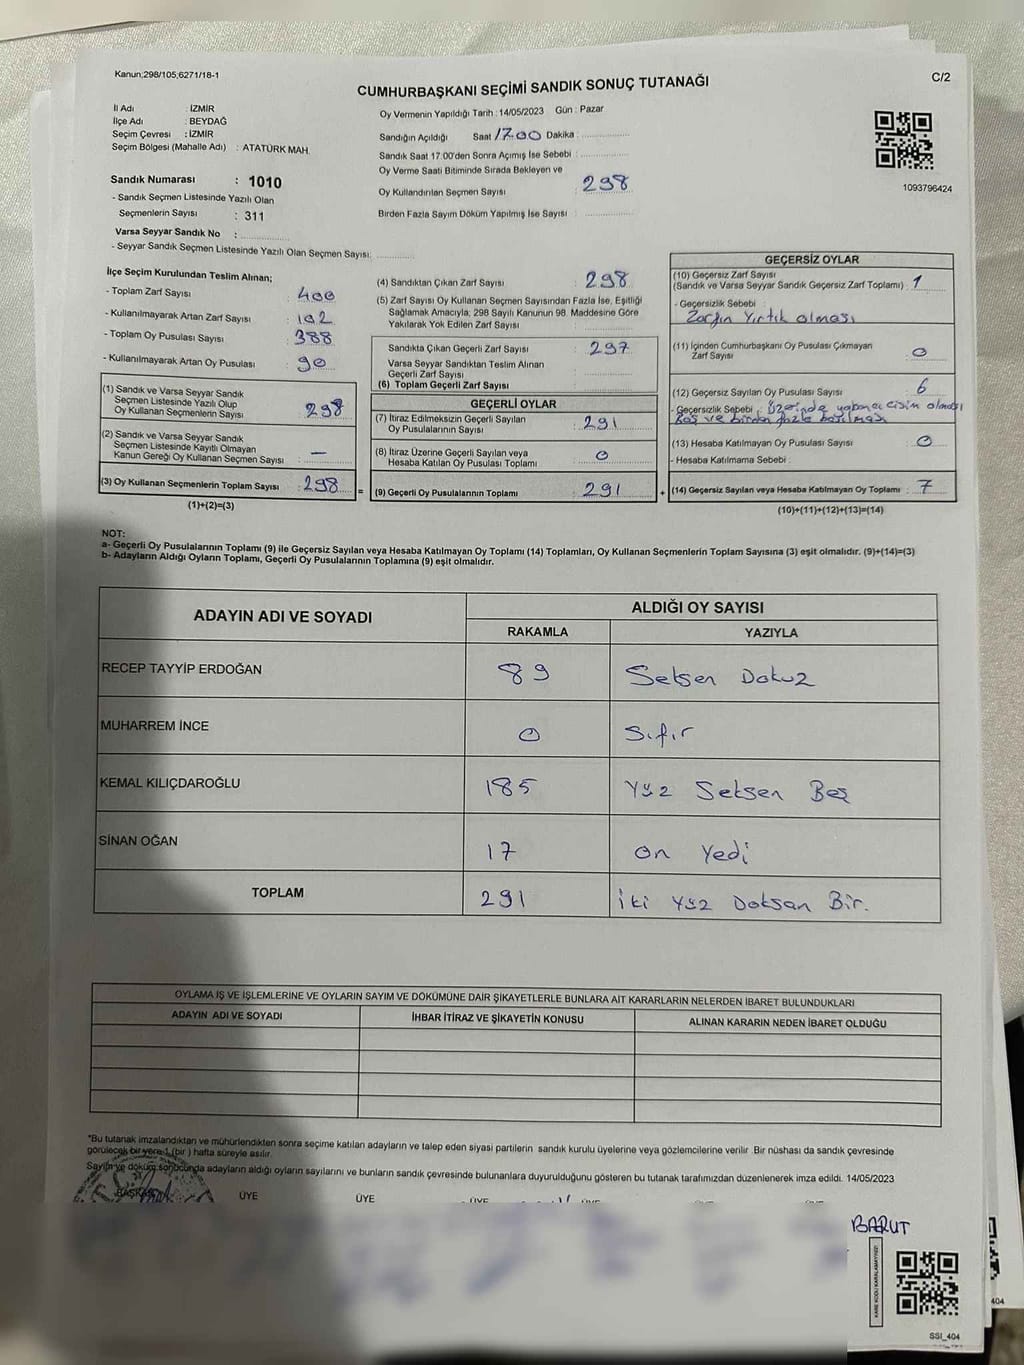 Kanun;298/105,6271/18-1
C/2
CUMHURBAŞKANI SEÇİMİ SANDIK SONUÇ TUTANAĞI
İl Adı : İZMİR
İlçe Adı : BEYDAĞ
Seçim Çevresi : İZMİR
Seçim Bölgesi (Mahalle Adı) : ATATÜRK MAH.
Sandık Numarası : 1010
- Sandık Seçmen Listesinde Yazılı Olan
Seçmenlerin Sayısı : 311
Varsa Seyyar Sandık No :
- Seyyar Sandık Seçmen Listesinde Yazılı Olan Seçmen Sayısı:
Oy Vermenin Yapıldığı Tarih : 14/05/2023 Gün : Pazar
Sandığın Açıldığı Saat 17.00 Dakika :
Sandık Saat 17:00'den Sonra Açımış İse Sebebi :
Oy Verme Saati Bitiminde Sırada Bekleyen ve
Oy Kullandırılan Seçmen Sayısı : 298
Birden Fazla Sayım Döküm Yapılmış İse Sayısı :
1093796424
İlçe Seçim Kurulundan Teslim Alınan;
- Toplam Zarf Sayısı : 400
- Kullanılmayarak Artan Zarf Sayısı : 102
- Toplam Oy Pusulası Sayısı : 388
- Kullanılmayarak Artan Oy Pusulası : 90
(1) Sandık ve Varsa Seyyar Sandık
Seçmen Listesinde Yazılı Olup
Oy Kullanan Seçmenlerin Sayısı : 298
(2) Sandık ve Varsa Seyyar Sandık
Seçmen Listesinde Kayıtlı Olmayan
Kanun Gereği Oy Kullanan Seçmen Sayısı : —
(3) Oy Kullanan Seçmenlerin Toplam Sayısı : 298
(1)+(2)=(3)
(4) Sandıktan Çıkan Zarf Sayısı : 298
(5) Zarf Sayısı Oy Kullanan Seçmen Sayısından Fazla İse, Eşitliği
Sağlamak Amacıyla; 298 Sayılı Kanunun 98. Maddesine Göre
Yakılarak Yok Edilen Zarf Sayısı :
Sandıkta Çıkan Geçerli Zarf Sayısı : 297
Varsa Seyyar Sandıktan Teslim Alınan
Geçerli Zarf Sayısı :
(6) Toplam Geçerli Zarf Sayısı :
GEÇERLİ OYLAR
(7) İtiraz Edilmeksizin Geçerli Sayılan
Oy Pusulalarının Sayısı : 291
(8) İtiraz Üzerine Geçerli Sayılan veya
Hesaba Katılan Oy Pusulası Toplamı : 0
= (9) Geçerli Oy Pusulalarının Toplamı : 291
GEÇERSİZ OYLAR
(10) Geçersiz Zarf Sayısı
(Sandık ve Varsa Seyyar Sandık Geçersiz Zarf Toplamı) : 1
- Geçersizlik Sebebi :
Zarfın Yırtık olması
(11) İçinden Cumhurbaşkanı Oy Pusulası Çıkmayan
Zarf Sayısı : 0
(12) Geçersiz Sayılan Oy Pusulası Sayısı : 6
- Geçersizlik Sebebi : Üzerinde yabancı cisim olması
Boş ve birden fazla basılması
(13) Hesaba Katılmayan Oy Pusulası Sayısı : 0
- Hesaba Katılmama Sebebi :
+ (14) Geçersiz Sayılan veya Hesaba Katılmayan Oy Toplamı : 7
(10)+(11)+(12)+(13)=(14)
NOT:
a- Geçerli Oy Pusulalarının Toplamı (9) ile Geçersiz Sayılan veya Hesaba Katılmayan Oy Toplamı (14) Toplamları, Oy Kullanan Seçmenlerin Toplam Sayısına (3) eşit olmalıdır. (9)+(14)=(3)
b- Adayların Aldığı Oyların Toplamı, Geçerli Oy Pusulalarının Toplamına (9) eşit olmalıdır.
ADAYIN ADI VE SOYADI
ALDIĞI OY SAYISI
RAKAMLA YAZIYLA
RECEP TAYYİP ERDOĞAN 89 Seksen Dokuz
MUHARREM İNCE 0 Sıfır
KEMAL KILIÇDAROĞLU 185 Yüz Seksen Beş
SİNAN OĞAN 17 On Yedi
TOPLAM 291 İki Yüz Doksan Bir.
OYLAMA İŞ VE İŞLEMLERİNE VE OYLARIN SAYIM VE DÖKÜMÜNE DAİR ŞİKAYETLERLE BUNLARA AİT KARARLARIN NELERDEN İBARET BULUNDUKLARI
ADAYIN ADI VE SOYADI İHBAR İTİRAZ VE ŞİKAYETİN KONUSU ALINAN KARARIN NEDEN İBARET OLDUĞU
*Bu tutanak imzalandıktan ve mühürlendikten sonra seçime katılan adayların ve talep eden siyasi partilerin sandık kurulu üyelerine veya gözlemcilerine verilir Bir nüshası da sandık çevresinde
görülecek bir yere 1 (bir ) hafta süreyle asılır.
Sayım ve döküm sonucunda adayların aldığı oyların sayılarını ve bunların sandık çevresinde bulunanlara duyurulduğunu gösteren bu tutanak tarafımızdan düzenlenerek imza edildi. 14/05/2023
BAŞKAN ÜYE ÜYE ÜYE
BARUT
KARE KODU KARALAMAYINIZ!
SSI_404
404